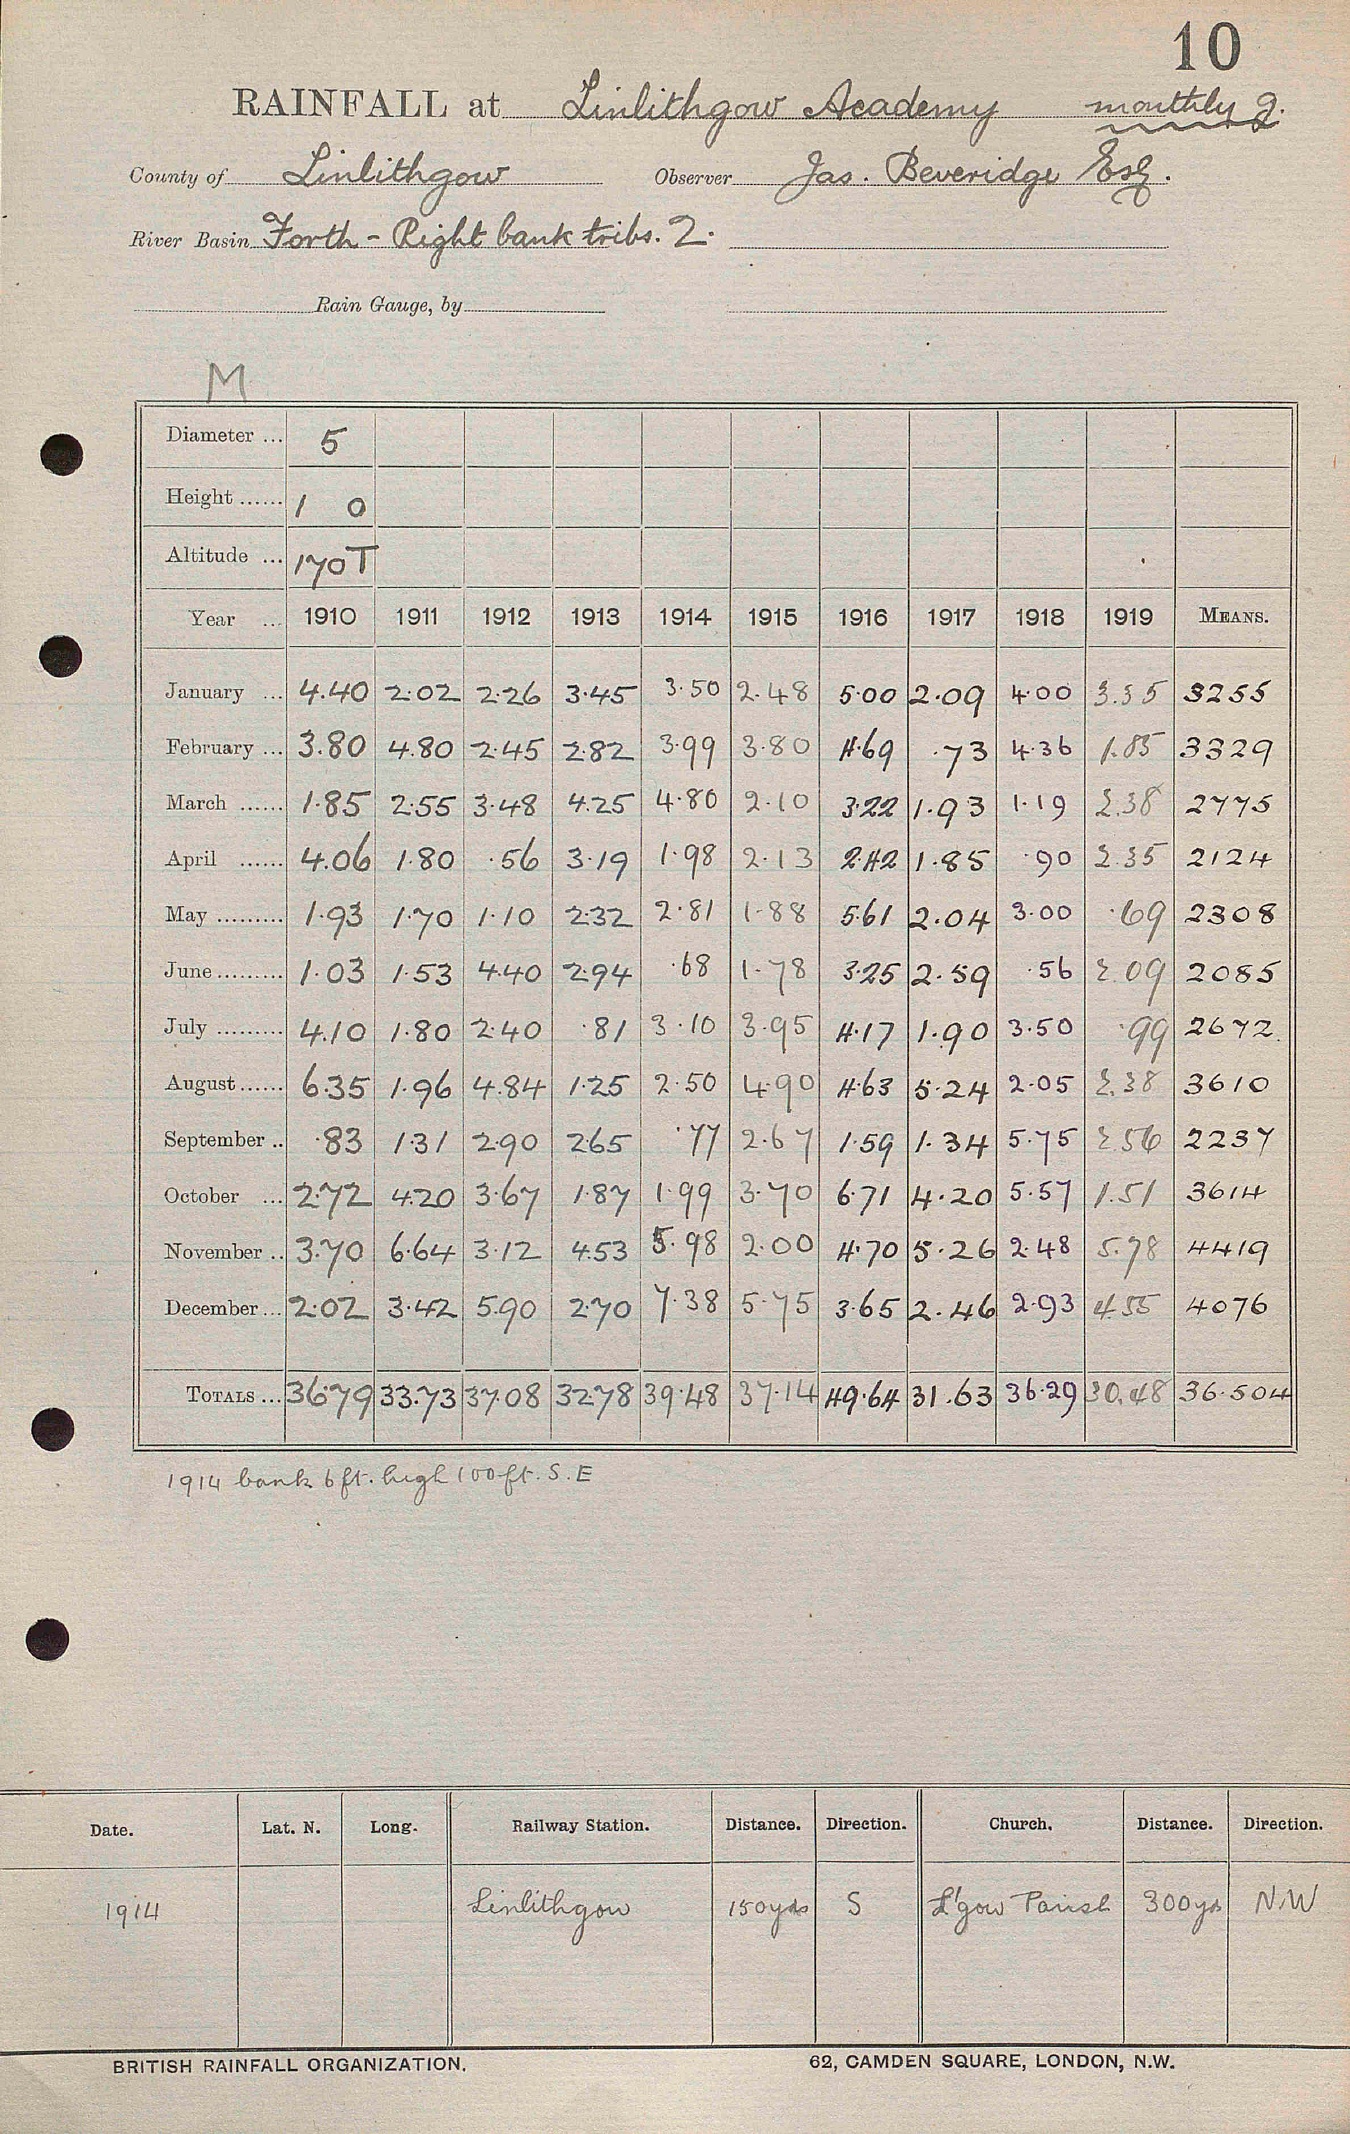 10
RAINFALL at Linlithgow Academy monthly g.
County of Linlithgow Observer Jas. Beveridge Esq.
River Basin Forth - Right bank tribs. 2.
Rain Gauge, by
M
Diameter ... 5
Height ...... 1 0
Altitude ... 170T
Year ... 1910 1911 1912 1913 1914 1915 1916 1917 1918 1919 MEANS.
January ... 4.40 2.02 2.26 3.45 3.50 2.48 5.00 2.09 4.00 3.35 3255
February ... 3.80 4.80 2.45 2.82 3.99 3.80 4.69 .73 4.36 1.85 3329
March ...... 1.85 2.55 3.48 4.25 4.80 2.10 3.22 1.93 1.19 2.38 2775
April ...... 4.06 1.80 .56 3.19 1.98 2.13 2.42 1.85 .90 2.35 2124
May ......... 1.93 1.70 1.10 2.32 2.81 1.88 5.61 2.04 3.00 .69 2308
June ......... 1.03 1.53 4.40 2.94 .68 1.78 3.25 2.59 .56 2.09 2085
July ......... 4.10 1.80 2.40 .81 3.10 3.95 4.17 1.90 3.50 .99 2672
August ...... 6.35 1.96 4.84 1.25 2.50 4.90 4.63 5.24 2.05 2.38 3610
September .. .83 1.31 2.90 2.65 .77 2.67 1.59 1.34 5.75 2.56 2237
October ... 2.72 4.20 3.67 1.87 1.99 3.70 6.71 4.20 5.57 1.51 3614
November .. 3.70 6.64 3.12 4.53 5.98 2.00 4.70 5.26 2.48 5.78 4419
December ... 2.02 3.42 5.90 2.70 7.38 5.75 3.65 2.46 2.93 4.55 4076
TOTALS ... 36.79 33.73 37.08 32.78 39.48 37.14 49.64 31.63 36.29 30.48 36.504
1914 bank 6 ft. high 100 ft. S.E
Date. Lat. N. Long. Railway Station. Distance. Direction. Church. Distance. Direction.
1914 Linlithgow 150 yds S L'gow Parish 300 yds N.W
BRITISH RAINFALL ORGANIZATION. 62, CAMDEN SQUARE, LONDON, N.W.